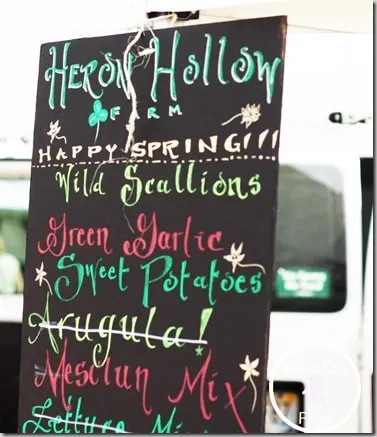 Heron Hollow
FARM
HAPPY SPRING!!!
Wild Scallions
Green Garlic
Sweet Potatoes
Arugula!
Mesclun Mix
Lettuce